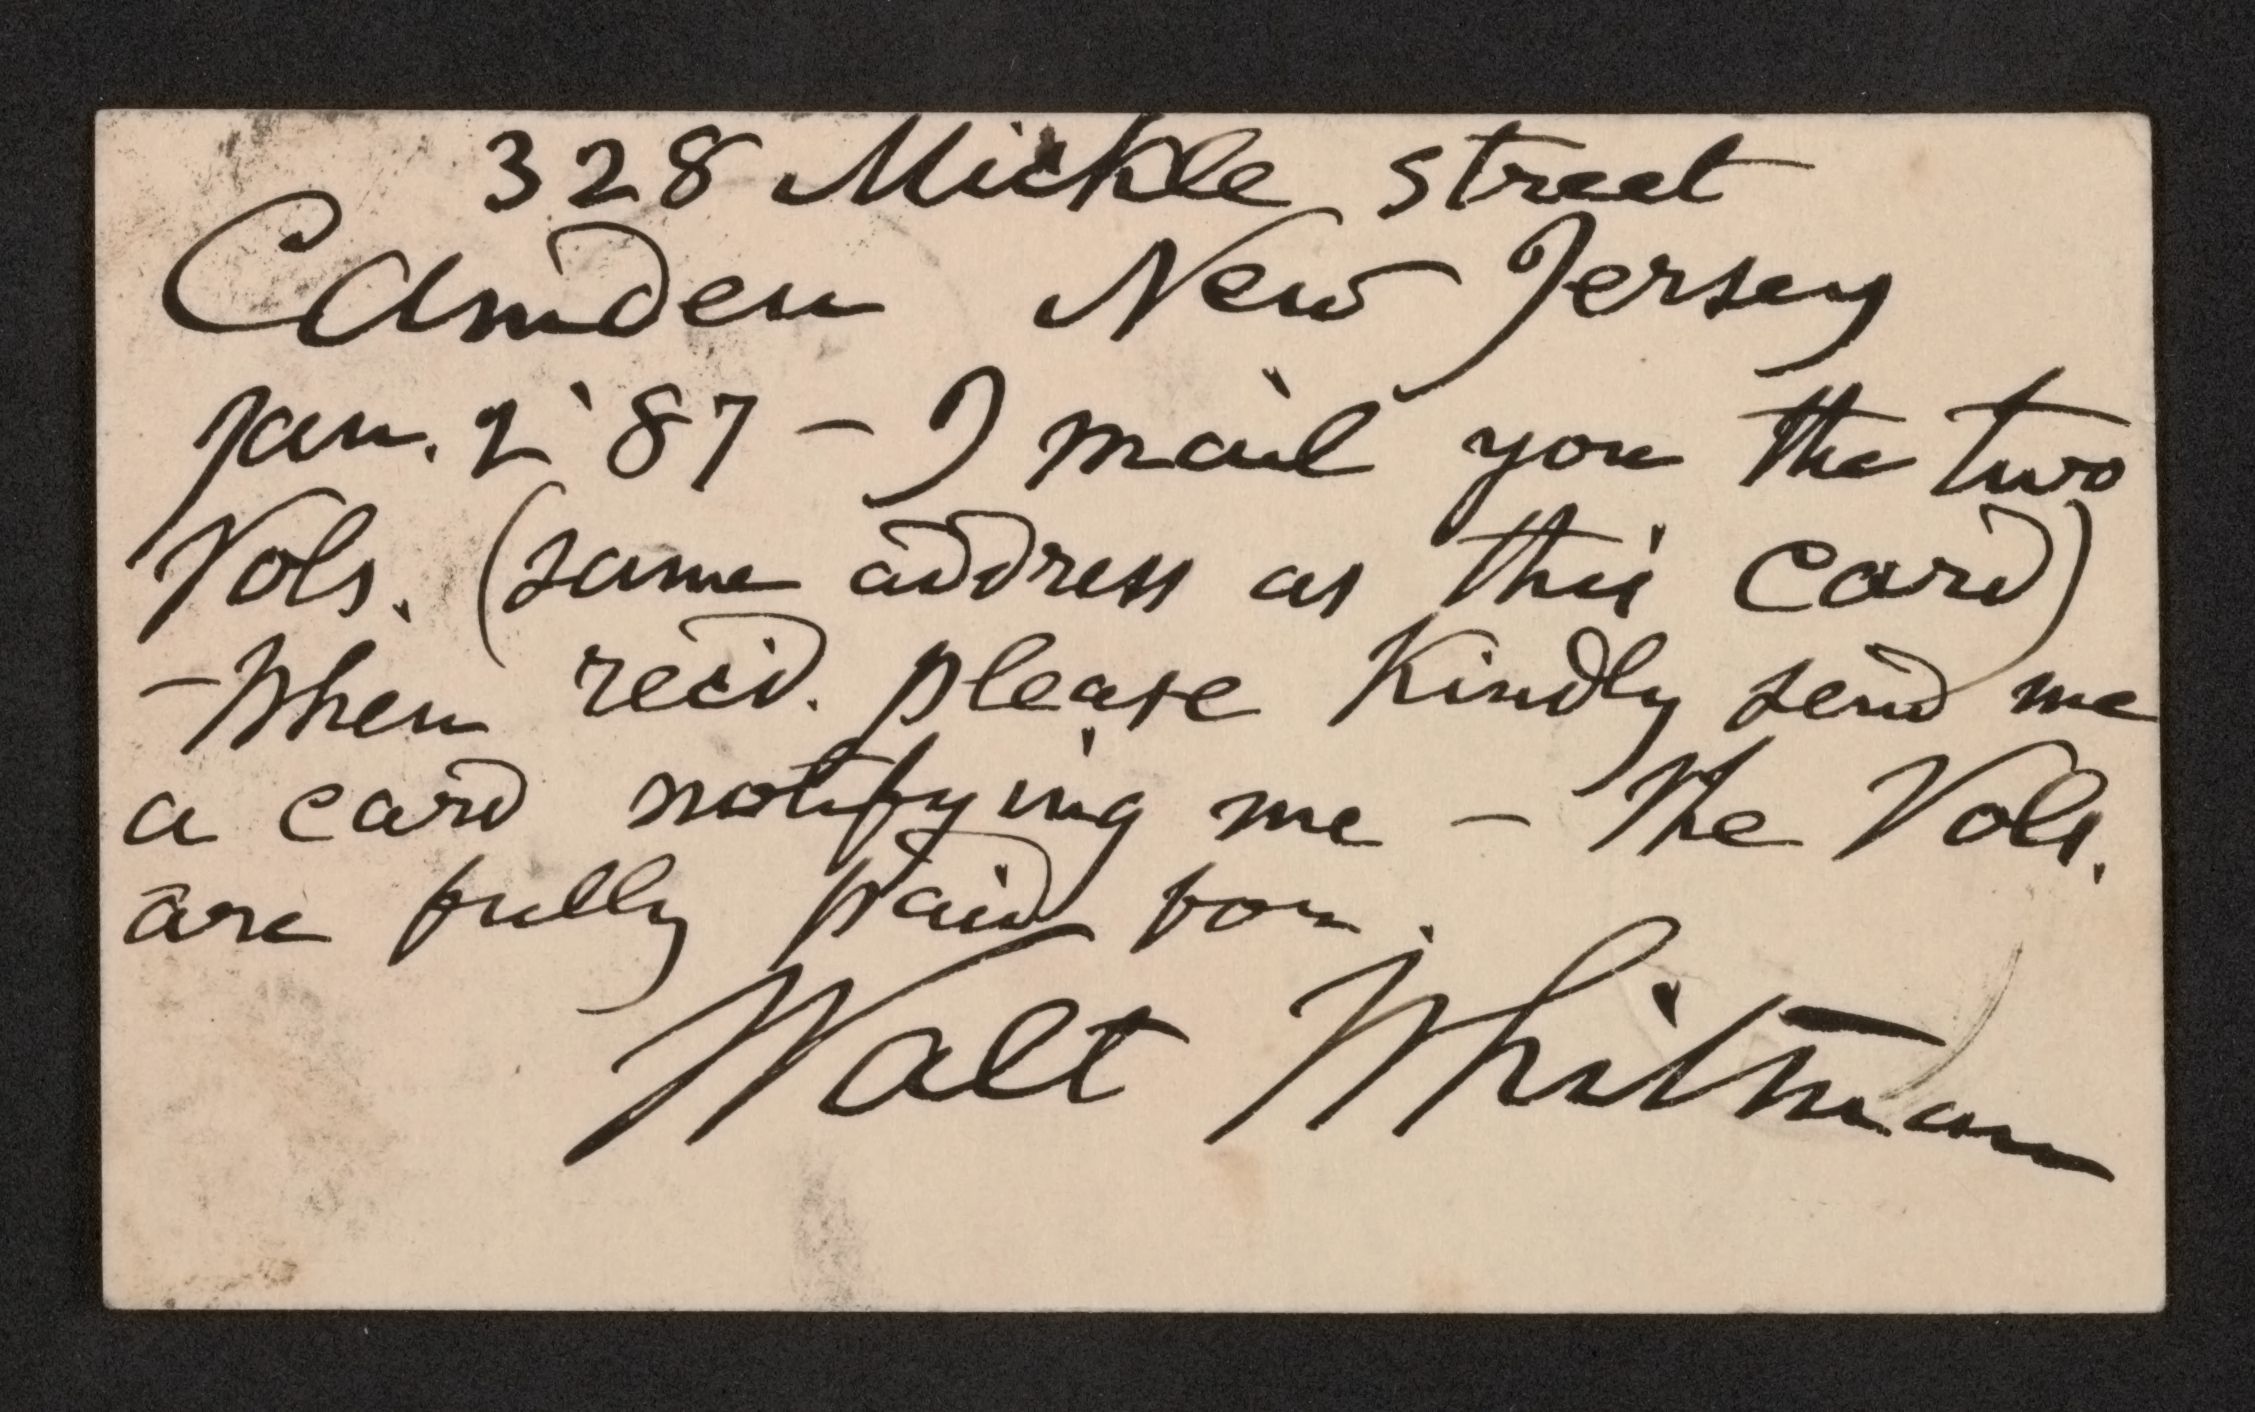 328 Mickle street
Camden New Jersey
Jan. 2 '87 – I mail you the two
Vols. (same address as this card)
– When rec'd. please kindly send me
a card notifying me – The Vols.
are fully paid for.
Walt Whitman